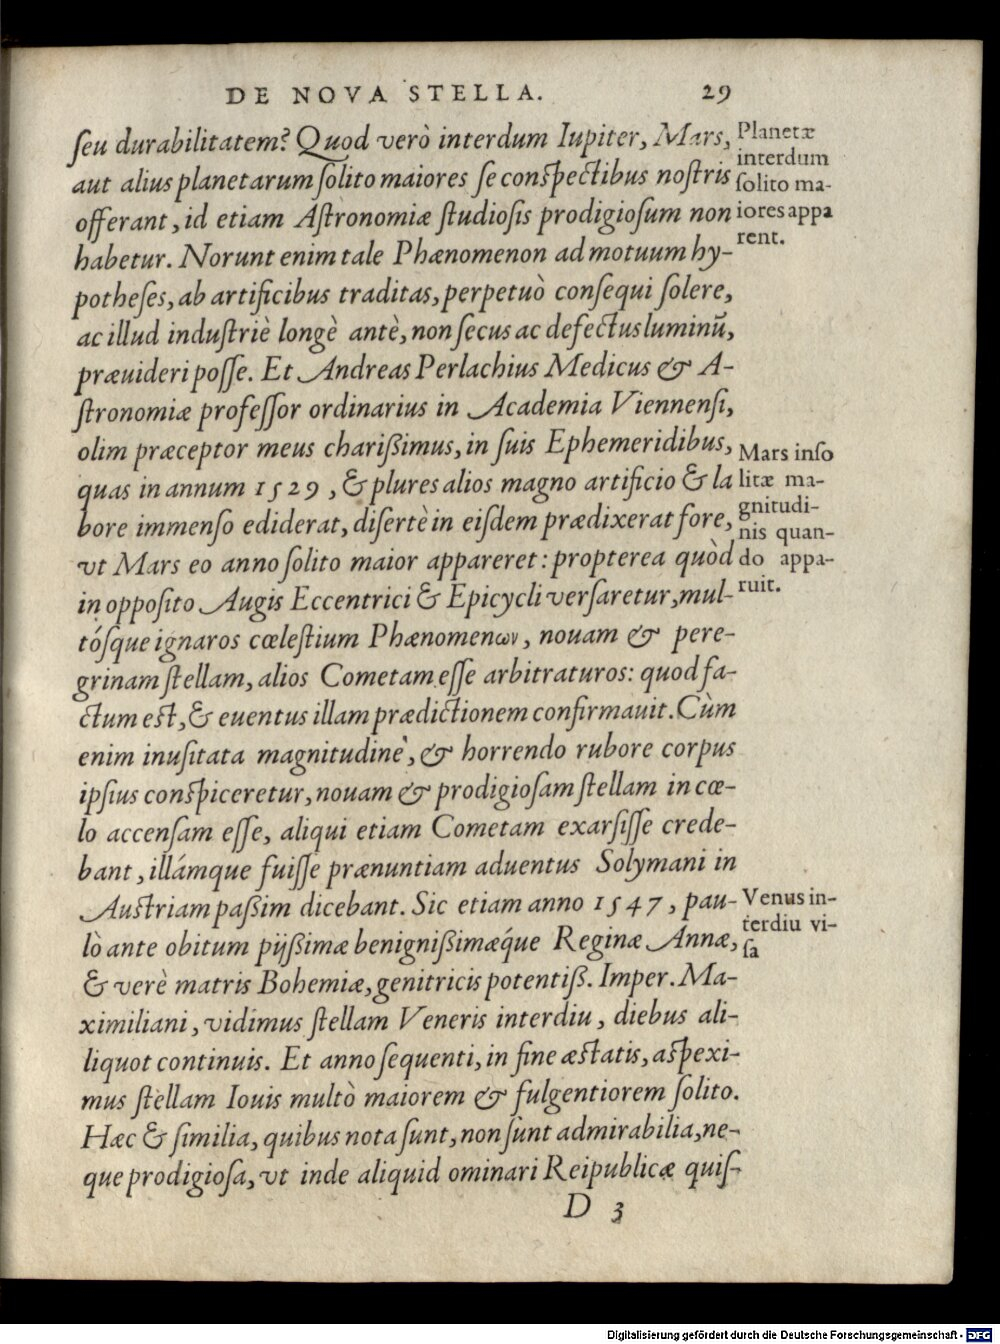 DE NOVA STELLA. 29
seu durabilitatem? Quod verò interdum Iupiter, Mars,
aut alius planetarum solito maiores se conspectibus nostris
offerant, id etiam Astronomiæ studiosis prodigiosum non
habetur. Norunt enim tale Phænomenon ad motuum hy-
potheses, ab artificibus traditas, perpetuò consequi solere,
ac illud industriè longè antè, non secus ac defectus luminū,
præuideri posse. Et Andreas Perlachius Medicus & A-
stronomiæ professor ordinarius in Academia Viennensi,
olim præceptor meus charißimus, in suis Ephemeridibus,
quas in annum 1529, & plures alios magno artificio & la
bore immenso ediderat, disertè in eisdem prædixerat fore,
vt Mars eo anno solito maior appareret: propterea quòd
in opposito Augis Eccentrici & Epicycli versaretur, mul-
tósque ignaros cœlestium Phænomenων, nouam & pere-
grinam stellam, alios Cometam esse arbitraturos: quod fa-
ctum est, & euentus illam prædictionem confirmauit. Cùm
enim inusitata magnitudine, & horrendo rubore corpus
ipsius conspiceretur, nouam & prodigiosam stellam in cœ-
lo accensam esse, aliqui etiam Cometam exarsisse crede-
bant, illámque fuisse prænuntiam aduentus Solymani in
Austriam paßim dicebant. Sic etiam anno 1547, pau-
lò ante obitum pijßimæ benignißimæq́ue Reginæ Annæ,
& verè matris Bohemiæ, genitricis potentiß. Imper. Ma-
ximiliani, vidimus stellam Veneris interdiu, diebus ali-
liquot continuis. Et anno sequenti, in fine æstatis, aspexi-
mus stellam Iouis multò maiorem & fulgentiorem solito.
Hæc & similia, quibus nota sunt, non sunt admirabilia, ne-
que prodigiosa, vt inde aliquid ominari Reipublicæ quis-
D 3
Planetæ
interdum
solito ma-
iores appa
rent.
Mars inso
litæ ma-
gnitudi-
nis quan-
do appa-
ruit.
Venus in-
terdiu vi-
sa
Digitalisierung gefördert durch die Deutsche Forschungsgemeinschaft - DFG